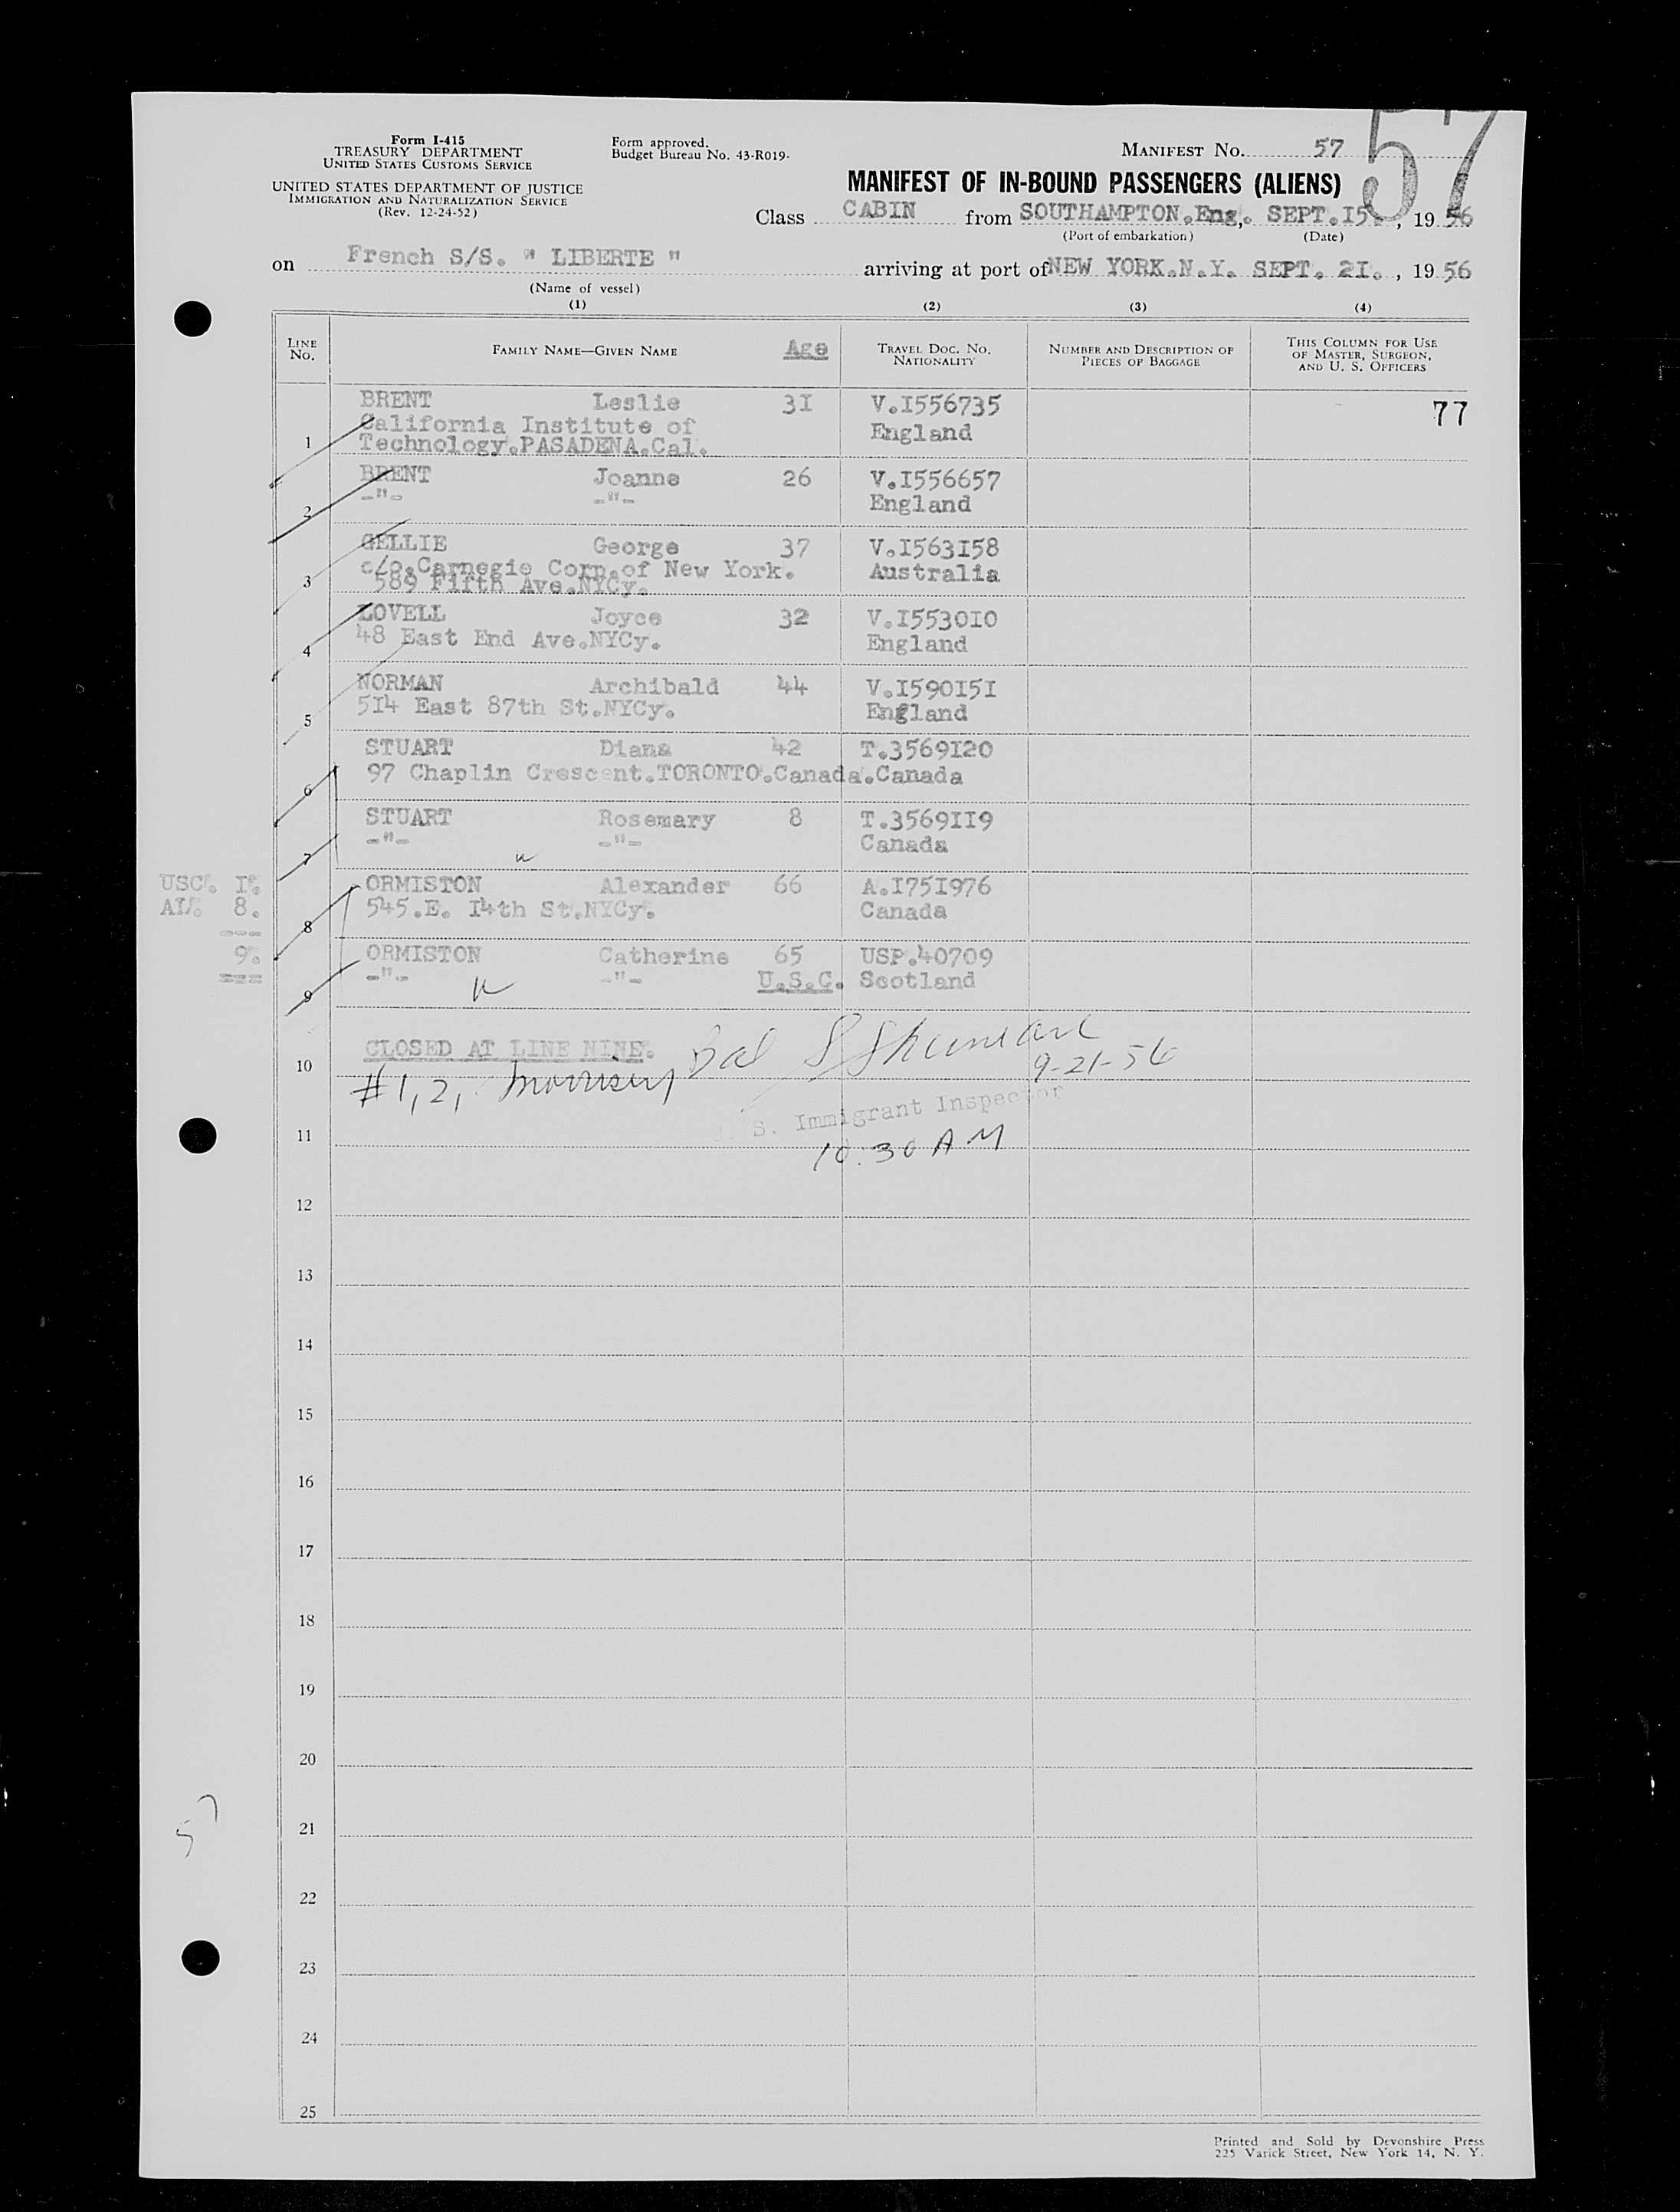 Form I-415
TREASURY DEPARTMENT
UNITED STATES CUSTOMS SERVICE
UNITED STATES DEPARTMENT OF JUSTICE
IMMIGRATION AND NATURALIZATION SERVICE
(Rev. 12-24-52)
Form approved.
Budget Bureau No. 43-R019.
MANIFEST No. 57
57
MANIFEST OF IN-BOUND PASSENGERS (ALIENS)
Class CABIN from SOUTHAMPTON.Eng,. SEPT.I5., 19 56
(Port of embarkation) (Date)
on French S/S. " LIBERTE " arriving at port of NEW YORK.N.Y. SEPT. 2I. , 19 56
(Name of vessel)
(1) (2) (3) (4)
LINE No. FAMILY NAME—GIVEN NAME Age TRAVEL DOC. NO. NATIONALITY NUMBER AND DESCRIPTION OF PIECES OF BAGGAGE THIS COLUMN FOR USE OF MASTER, SURGEON, AND U. S. OFFICERS
BRENT Leslie 3I V.I556735 77
California Institute of England
1 Technology.PASADENA.Cal.
BRENT Joanne 26 V.I556657
-"- -"- England
2
GELLIE George 37 V.I563I58
c/o.Carnegie Corp.of New York. Australia
3 589 Fifth Ave.NYCy.
LOVELL Joyce 32 V.I5530I0
48 East End Ave.NYCy. England
4
NORMAN Archibald 44 V.I590I5I
5I4 East 87th St.NYCy. England
5
STUART Diana 42 T.3569I20
97 Chaplin Crescent.TORONTO.Canada.Canada
6
STUART Rosemary 8 T.3569II9
-"- -"- Canada
7
USC. I. ORMISTON Alexander 66 A.I75I976
AL. 8. 545.E. I4th St.NYCy. Canada
--- 8
9. ORMISTON Catherine 65 USP.40709
=== -"- -"- U.S.C. Scotland
9
CLOSED AT LINE NINE.
10 9-21-56
#1,2,
S. Immigrant Inspector
11 10:30 AM
12
13
14
15
16
17
18
19
20
57
21
22
23
24
25
Printed and Sold by Devonshire Press
225 Varick Street, New York 14, N. Y.